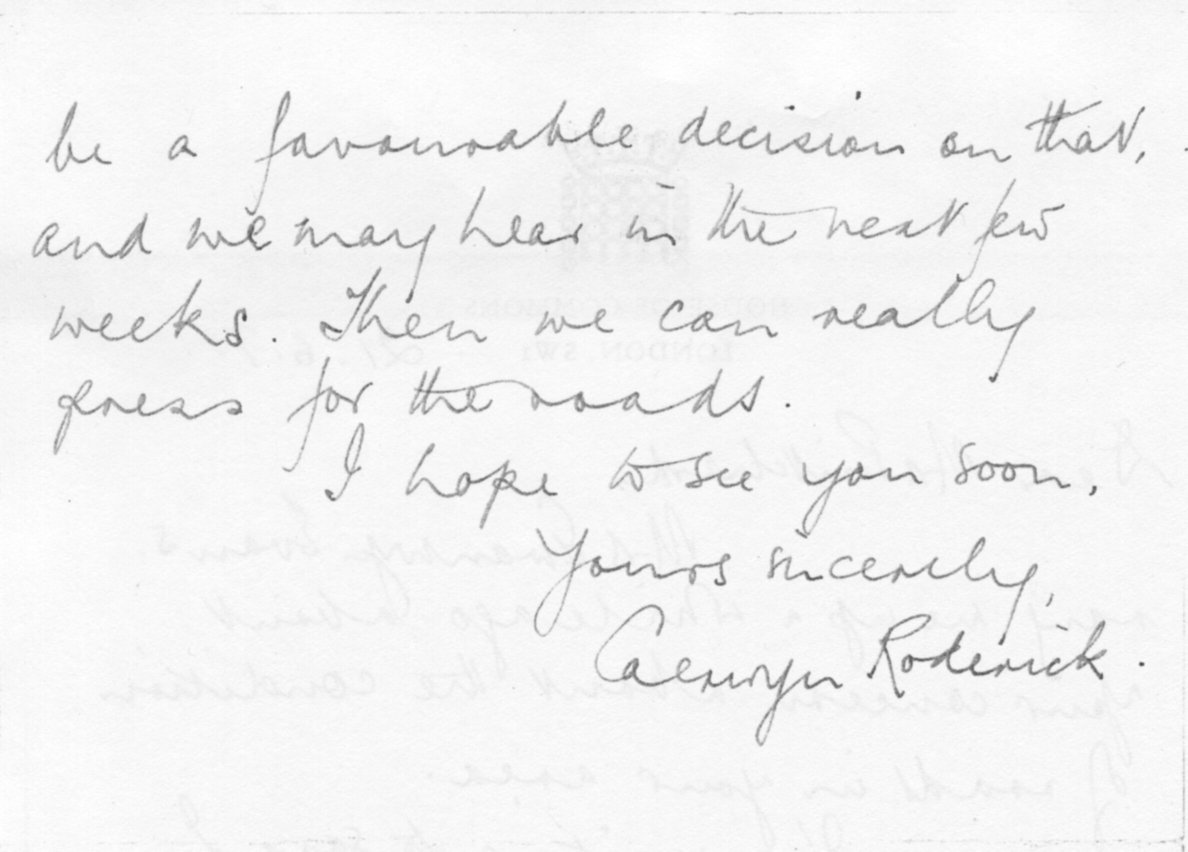 be a favourable decision on that,
and we may hear in the next few
weeks. Then we can really
press for the roads.
I hope to see you soon,
Yours sincerely,
Caerwyn Roderick.
HOUSE OF COMMONS
LONDON, SW1